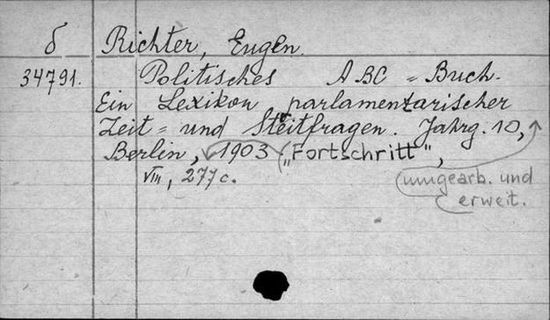 б Richter, Eugen.
34791. Politisches ABC = Buch.
Ein Lexikon parlamentarischer
Zeit = und Steitfragen. Jahrg. 10,
Berlin, 1903 („Fortschritt",
VIII, 277 c.
umgearb. und
erweit.